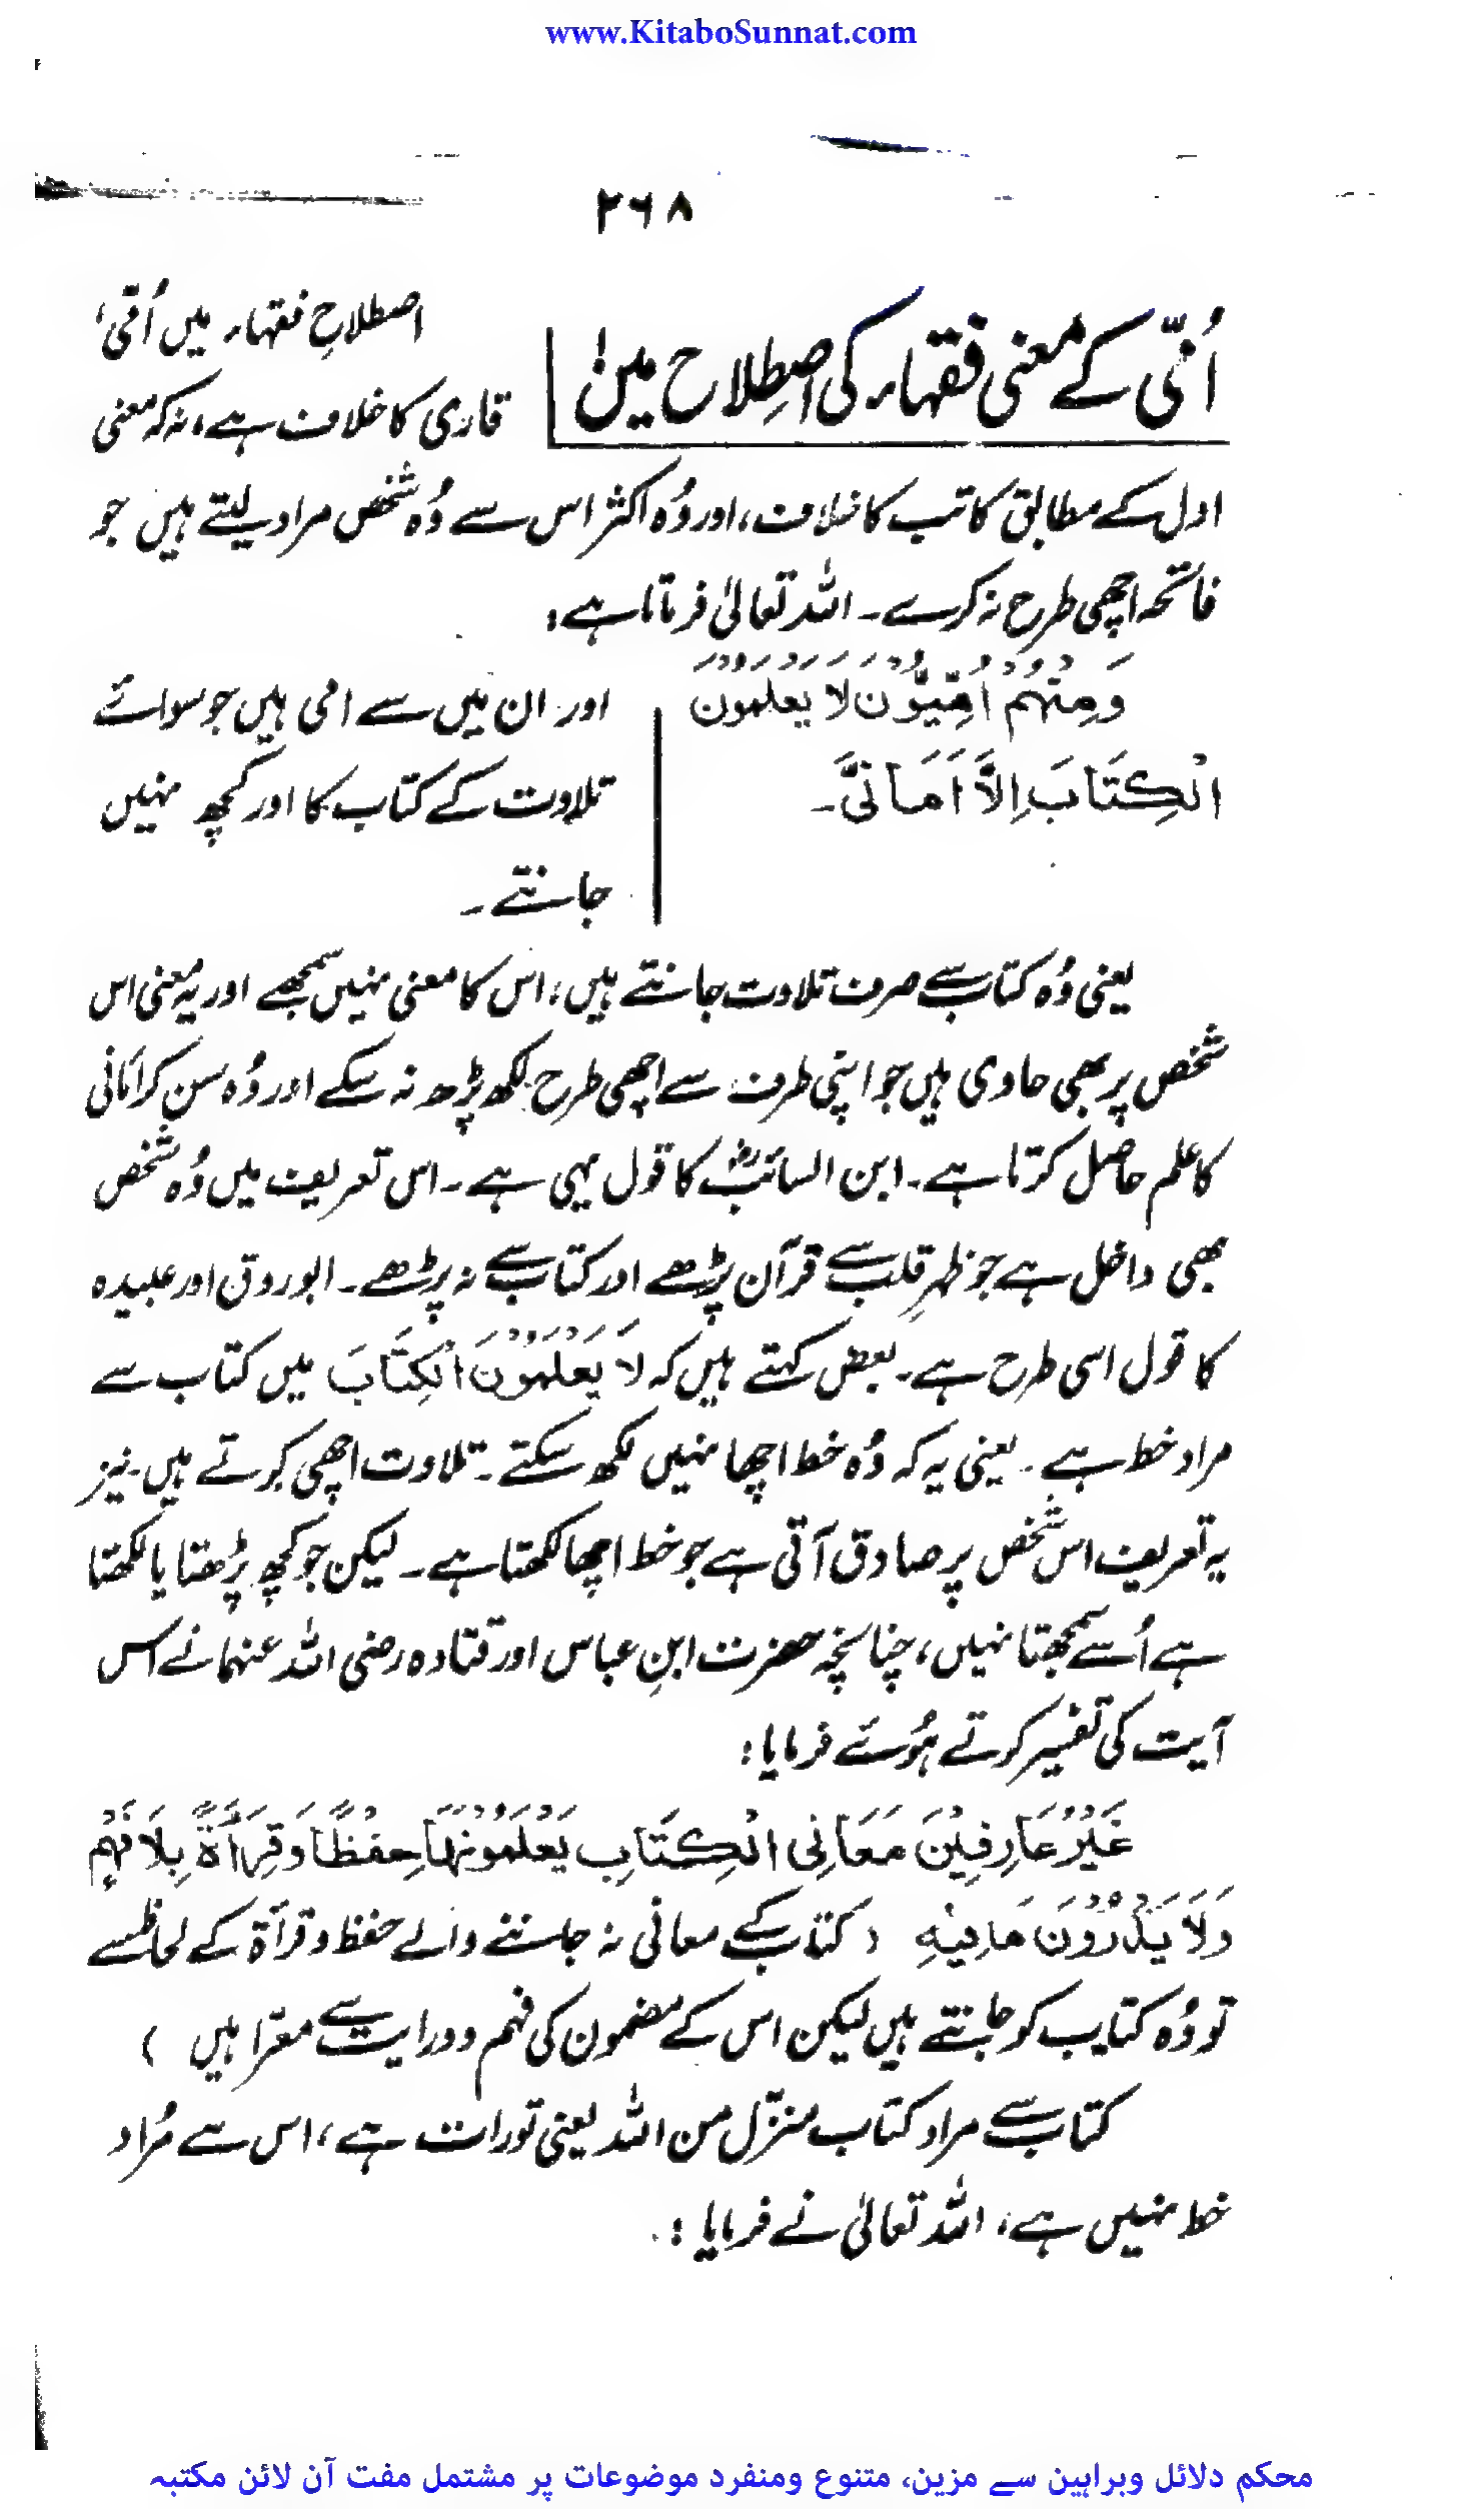 www.KitaboSunnat.com
۲۶۸
اُمّی کے معنی فقہاء کی اصطِلاح میں
اصطلاحِ فقہاء میں اُمّی،
قاری کا خلاف ہے، نہ کہ معنی
اول کے مطابق کاتب کا خلاف، اور وُہ اکثر اس سے وُہ شخص مراد لیتے ہیں جو
فاتحہ اچھی طرح نہ کرے۔ اللہ تعالیٰ فرماتا ہے:
وَمِنْهُمْ اُمِّيُّوْنَ لَا يَعْلَمُوْنَ
الْكِتَابَ اِلَّا اَمَانِيَّ۔
اور ان میں سے امی ہیں جو سوائے
تلاوت کے کتاب کا اور کچھ نہیں
جانتے۔
یعنی وُہ کتاب سے صرف تلاوت جانتے ہیں، اس کا معنی نہیں سمجھے اور یہ معنی اس
شخص پر بھی حاوی ہیں جو اپنی طرف سے اچھی طرح لکھ پڑھ نہ سکے اور وُہ سن کر امانی
کا علم حاصل کرتا ہے۔ ابن السائبؒ کا قول یہی ہے۔ اس تعریف میں وُہ شخص
بھی داخل ہے جو ظہرِ قلب سے قرآن پڑھے اور کتاب سے نہ پڑھے۔ ابوروق اور عبیدہ
کا قول اسی طرح ہے۔ بعض کہتے ہیں کہ لَا يَعْلَمُوْنَ الْكِتَابَ میں کتاب سے
مراد خط ہے۔ یعنی یہ کہ وُہ خط اچھا نہیں لکھ سکتے۔ تلاوت اچھی کرتے ہیں۔ نیز
یہ تعریف اس شخص پر صادق آتی ہے جو خط اچھا لکھتا ہے۔ لیکن جو کچھ پڑھتا یا لکھتا
ہے اُسے سمجھتا نہیں، چنانچہ حضرت ابنِ عباس اور قتادہ رضی اللہ عنہما نے اس
آیت کی تفسیر کرتے ہُوئے فرمایا:
غَيْرُ عَارِفِيْنَ مَعَانِي الْكِتَابِ يَعْلَمُوْنَهَا حِفْظًا وَقِرَأَةً بِلَا فَهْمٍ
وَلَا يَدْرُوْنَ مَا فِيْهِ (کتاب کے معانی نہ جاننے والے حفظ و قرآۃ کے لحاظ سے
تو وُہ کتاب کو جانتے ہیں لیکن اس کے مضمون کی فہم و درایت سے معرّا ہیں)
کتاب سے مراد کتاب منزّل من اللہ یعنی تورات ہے، اس سے مُراد
خط نہیں ہے، اللہ تعالیٰ نے فرمایا:
محکم دلائل وبراہین سے مزین، متنوع ومنفرد موضوعات پر مشتمل مفت آن لائن مکتبہ